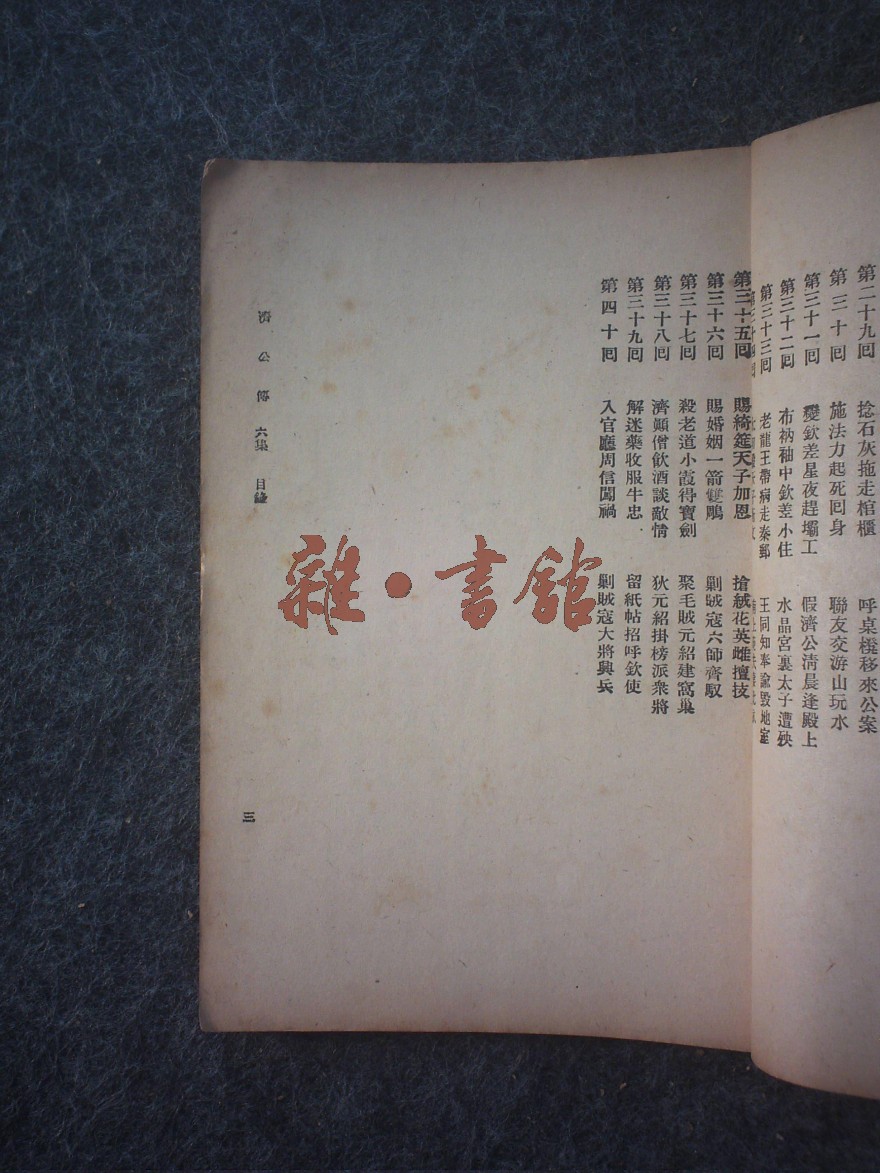 第二十九回 捻石灰拖走棺櫃 呼桌櫈移來公案
第三十回 施法力起死回身 聯友交游山玩水
第三十一回 變欽差星夜趕壩工 假濟公清晨逢殿上
第三十二回 布衲袖中欽差小住 水晶宮裏太子遭殃
第三十三回 老龍王帶病走秦郵 王同知奉諭毀地室
第三十五回 賜綺筵天子加恩 搶絨花英雌擅技
第三十六回 賜婚姻一箭雙鵰 剿賊寇六師齊馭
第三十七回 殺老道小霞得寶劍 聚毛賊元紹建窩巢
第三十八回 濟顚僧飮酒談敵情 狄元紹掛榜派衆將
第三十九回 解迷藥收服牛忠 留紙帖招呼欽使
第四十回 入官廳周信闖禍 剿賊寇大將興兵
濟公傳 六集 目錄
三
雜·書館